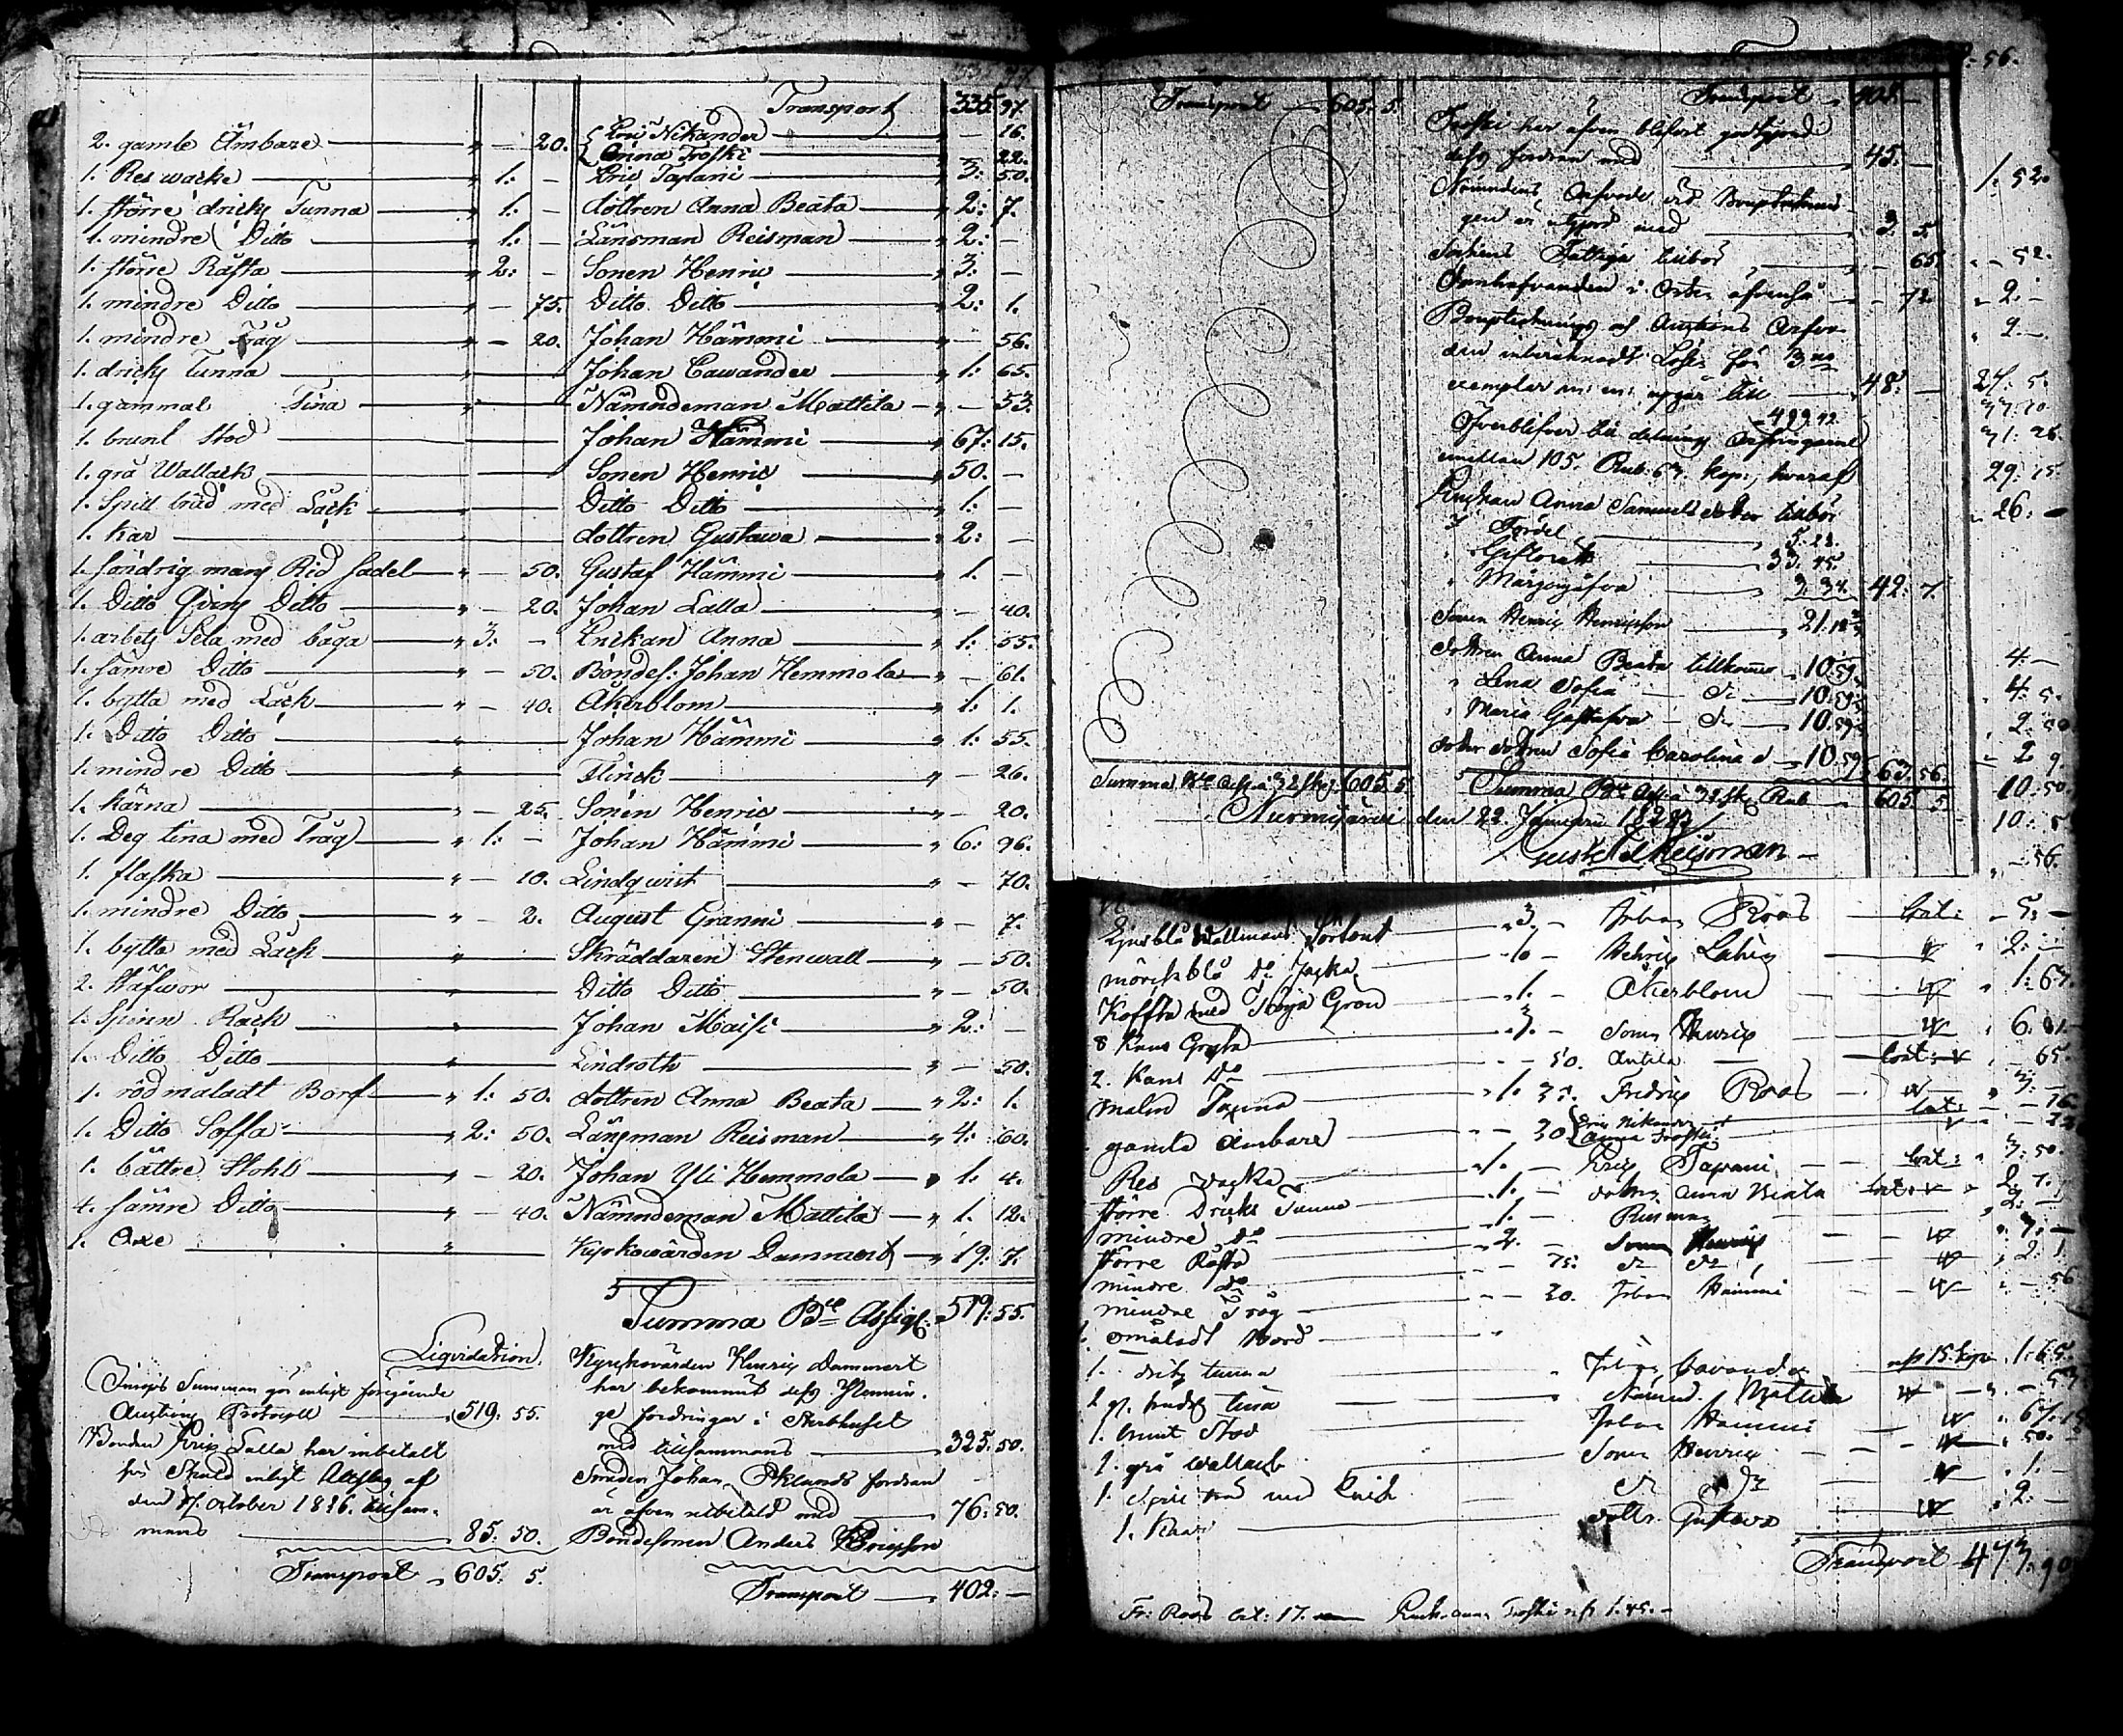 Transport 335. 97.
2. gamle Ämbare " — 20. Eric Nikander " — 26.
Anna Troski " — 22.
1. Res wacke " 1: — Eric Tapani " 3: 50.
1. större dricks Tunna " 1: — dottren Anna Beata " 2: 7.
1. mindre Ditto " 1: — Länsman Reisman " 2: —
1. större Räfta " 2: — Sonen Henric " 3: —
1. mindre Ditto " — 75. Ditto Ditto " 2: 1.
1. mindre Tråg " — 20. Johan Hämmi " — 56.
1. dricks Tunna " Johan Cawander " 1: 65.
1. gammal Tina " Nämndeman Mattila " — 53.
1. brunt Stod Johan Hämmi " 67: 15.
1. grå Wallack Sonen Henric " 50. —
1. Spill bräd med Läck Ditto Ditto " 1: —
1. Kar dottren Gustawa " 2: —
1. söndrig mans Rid sadel " — 50. Gustaf Hämmi " 1. —
1. Ditto Qvins Ditto " — 20. Johan Lalla " — 40.
1. arbets Sela med båga " 3: — Enckan Anna " 1: 55.
1. sämre Ditto " — 50. Bondes: Johan Hemmola " — 61.
1. bytta med Läck " — 40. Åkerblom " 1: 1.
1. Ditto Ditto " Johan Hämmi " 1: 55.
1. mindre Ditto " Flinck " — 26.
1. Kärna " — 25. Sonen Henric " — 20.
1. Deg tina med Tråg " 1: — Johan Hämmi " 6: 96.
1. flaska " — 10. Lindqwist " — 70.
1. mindre Ditto " — 2. August Granni " — 7.
1. bytta med Läck " Skräddaren Stenwall " — 50.
2. Häfwor " Ditto Ditto " — 50.
1. Spinn Råck " Johan Maisi " 2: —
1. Ditto Ditto " Lindroth " — 50.
1. rödmåladt Bord " 1: 50. dottren Anna Beata " 2: 1.
1. Ditto Soffa " 2: 50. Länsman Reisman " 4: 60.
1. bättre Stohl " — 20. Johan Yli Hemmola " 1. 4.
4. sämre Ditto " — 40. Nämndeman Mattila " 1. 12.
1. Oxe " Kyrkowärden Dammert " 19: 7.
Summa Bco Assign: 519: 55.
Liqvidation.
Summan gör enligt föregående
Auctions Protocoll 519: 55.
Bonden Eric Lalla har inbetalt
sin Skuld enligt Afslag af
den 17. October 1826. tillsam-
mans 85. 50.
Transport " 605. 5.
Kyrkovärden Henric Dammert
har bekommit dess
ga fordringar i Sterbhuset
med tillsammans 325. 50.
Smeden Johan Eklunds fordran
är äfven utbetald med 76: 50.
Bondesonen Anders Ericsson
Transport 402: —
Transport 605. 5.
Summa Bco Ass: à 32 sk: 605. 5.
Transport 402. —
Troski har äfven blifvit godtgjord
dess fordran med 45. —
Nämndens Arfvode vid
gen är utgjord med 3. 5.
Sockens Fattiga tillbör — 65.
— 72.
Bouptecknings och Auctions Arfvo-
den inberäknadt Lösen för 3ne
exemplar m: m: uppgår till 48. —
499.42
Öfverblifver till delning Arfvingarne
emellan 105. Rub: 63. kop:, hvaraf
Enckan Anna Samuelsdotter tillbör
Fördel 5. 28.
Giftorätt 33. 45.
Morgongåfva 3. 34. 42: 7.
Sonen Henric Henricsson 21. 18
dottren Anna Beata tillkommer 10. 59.
" Lena Sofia — dr 10. 59.
" Maria Gustafva — dr 10. 59.
dotter dottren Sofia Carolina d 10. 59. 63. 56.
Summa Bco Ass: à 32 sk: Rub 605. 5.
Nurmijärvi den 22. Januarii 1828
Gust: Ad Reisman
: 56.
1. 52.
" — 52.
" 2. —
" 2. —
27. 5.
37. 70.
71: 26.
29: 15.
" 26: —
4. —
4: 5.
2: 50.
2. 9.
10: 50.
10: 5.
" — 56.
Ljusblå Wallmans Sörtout " 3. — Johan Roos bet: " 5: —
mörckblå do Jacka Henric " 2: —
Koffta med Tröja Grön " 1. — Åkerblom " 1: 67.
8 Kans Gryta " 3. — Sonen Henric " 6. 61.
2. Kans do " — 50. Antila bet: — 65.
malm Tacka " 1. 35. Fredric Roos " 3: —
gamla ämbare — 20. Eric Nikander bet: — 26.
Anna Troski — 22.
Res vacka " 1. — Eric Tapani bet: " 3: 50.
större Dricks Tunna " 1. — dottren Anna Beata bet: " 2. 7.
mindre do " 1. — Reisman " 2: —
större Räfta " 2. — Sonen Henric " 3. —
mindre do — 75. dr dr " 2: 1.
mindre Tråg — 20. Johan Hämmi " — 56.
omåladt Bord "
1. dricks tunna Johan Cavander 15. kop: " 1: 65.
1 gl. tina Nämnd. Mattila " — 53.
1. brunt Stod Johan Hämmi " 67. 15.
1. grå wallack Sonen Henric " 50. —
1. Spill bräd med Läck dr dr " 1. —
1. Kaar dottr. Gustava " 2. —
Transport 473. 90
Fr: Roos bet: 17. — Enck: Anna Troski 1. 45. —